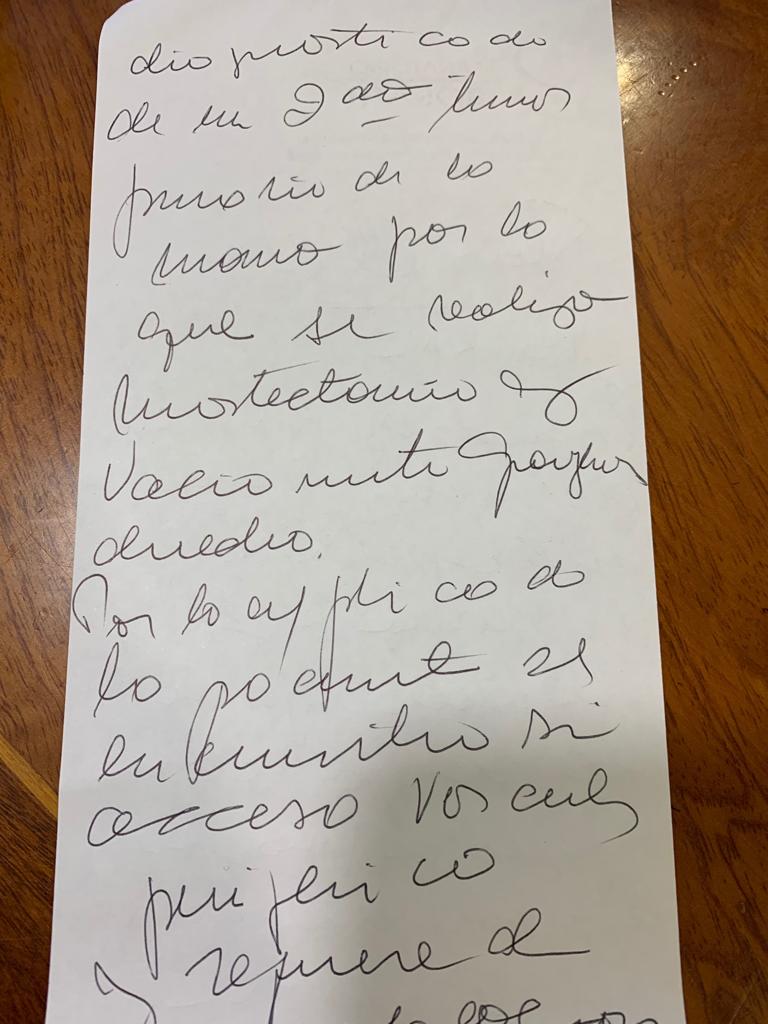 diagnosticado
de un 2do tumor
primario de la
mama por lo
que se realiza
mastectomía y
vaciamiento ganglionar
derecho.
Por lo explicado
la paciente se
encuentra sin
acceso vascular
periférico
y requiere de